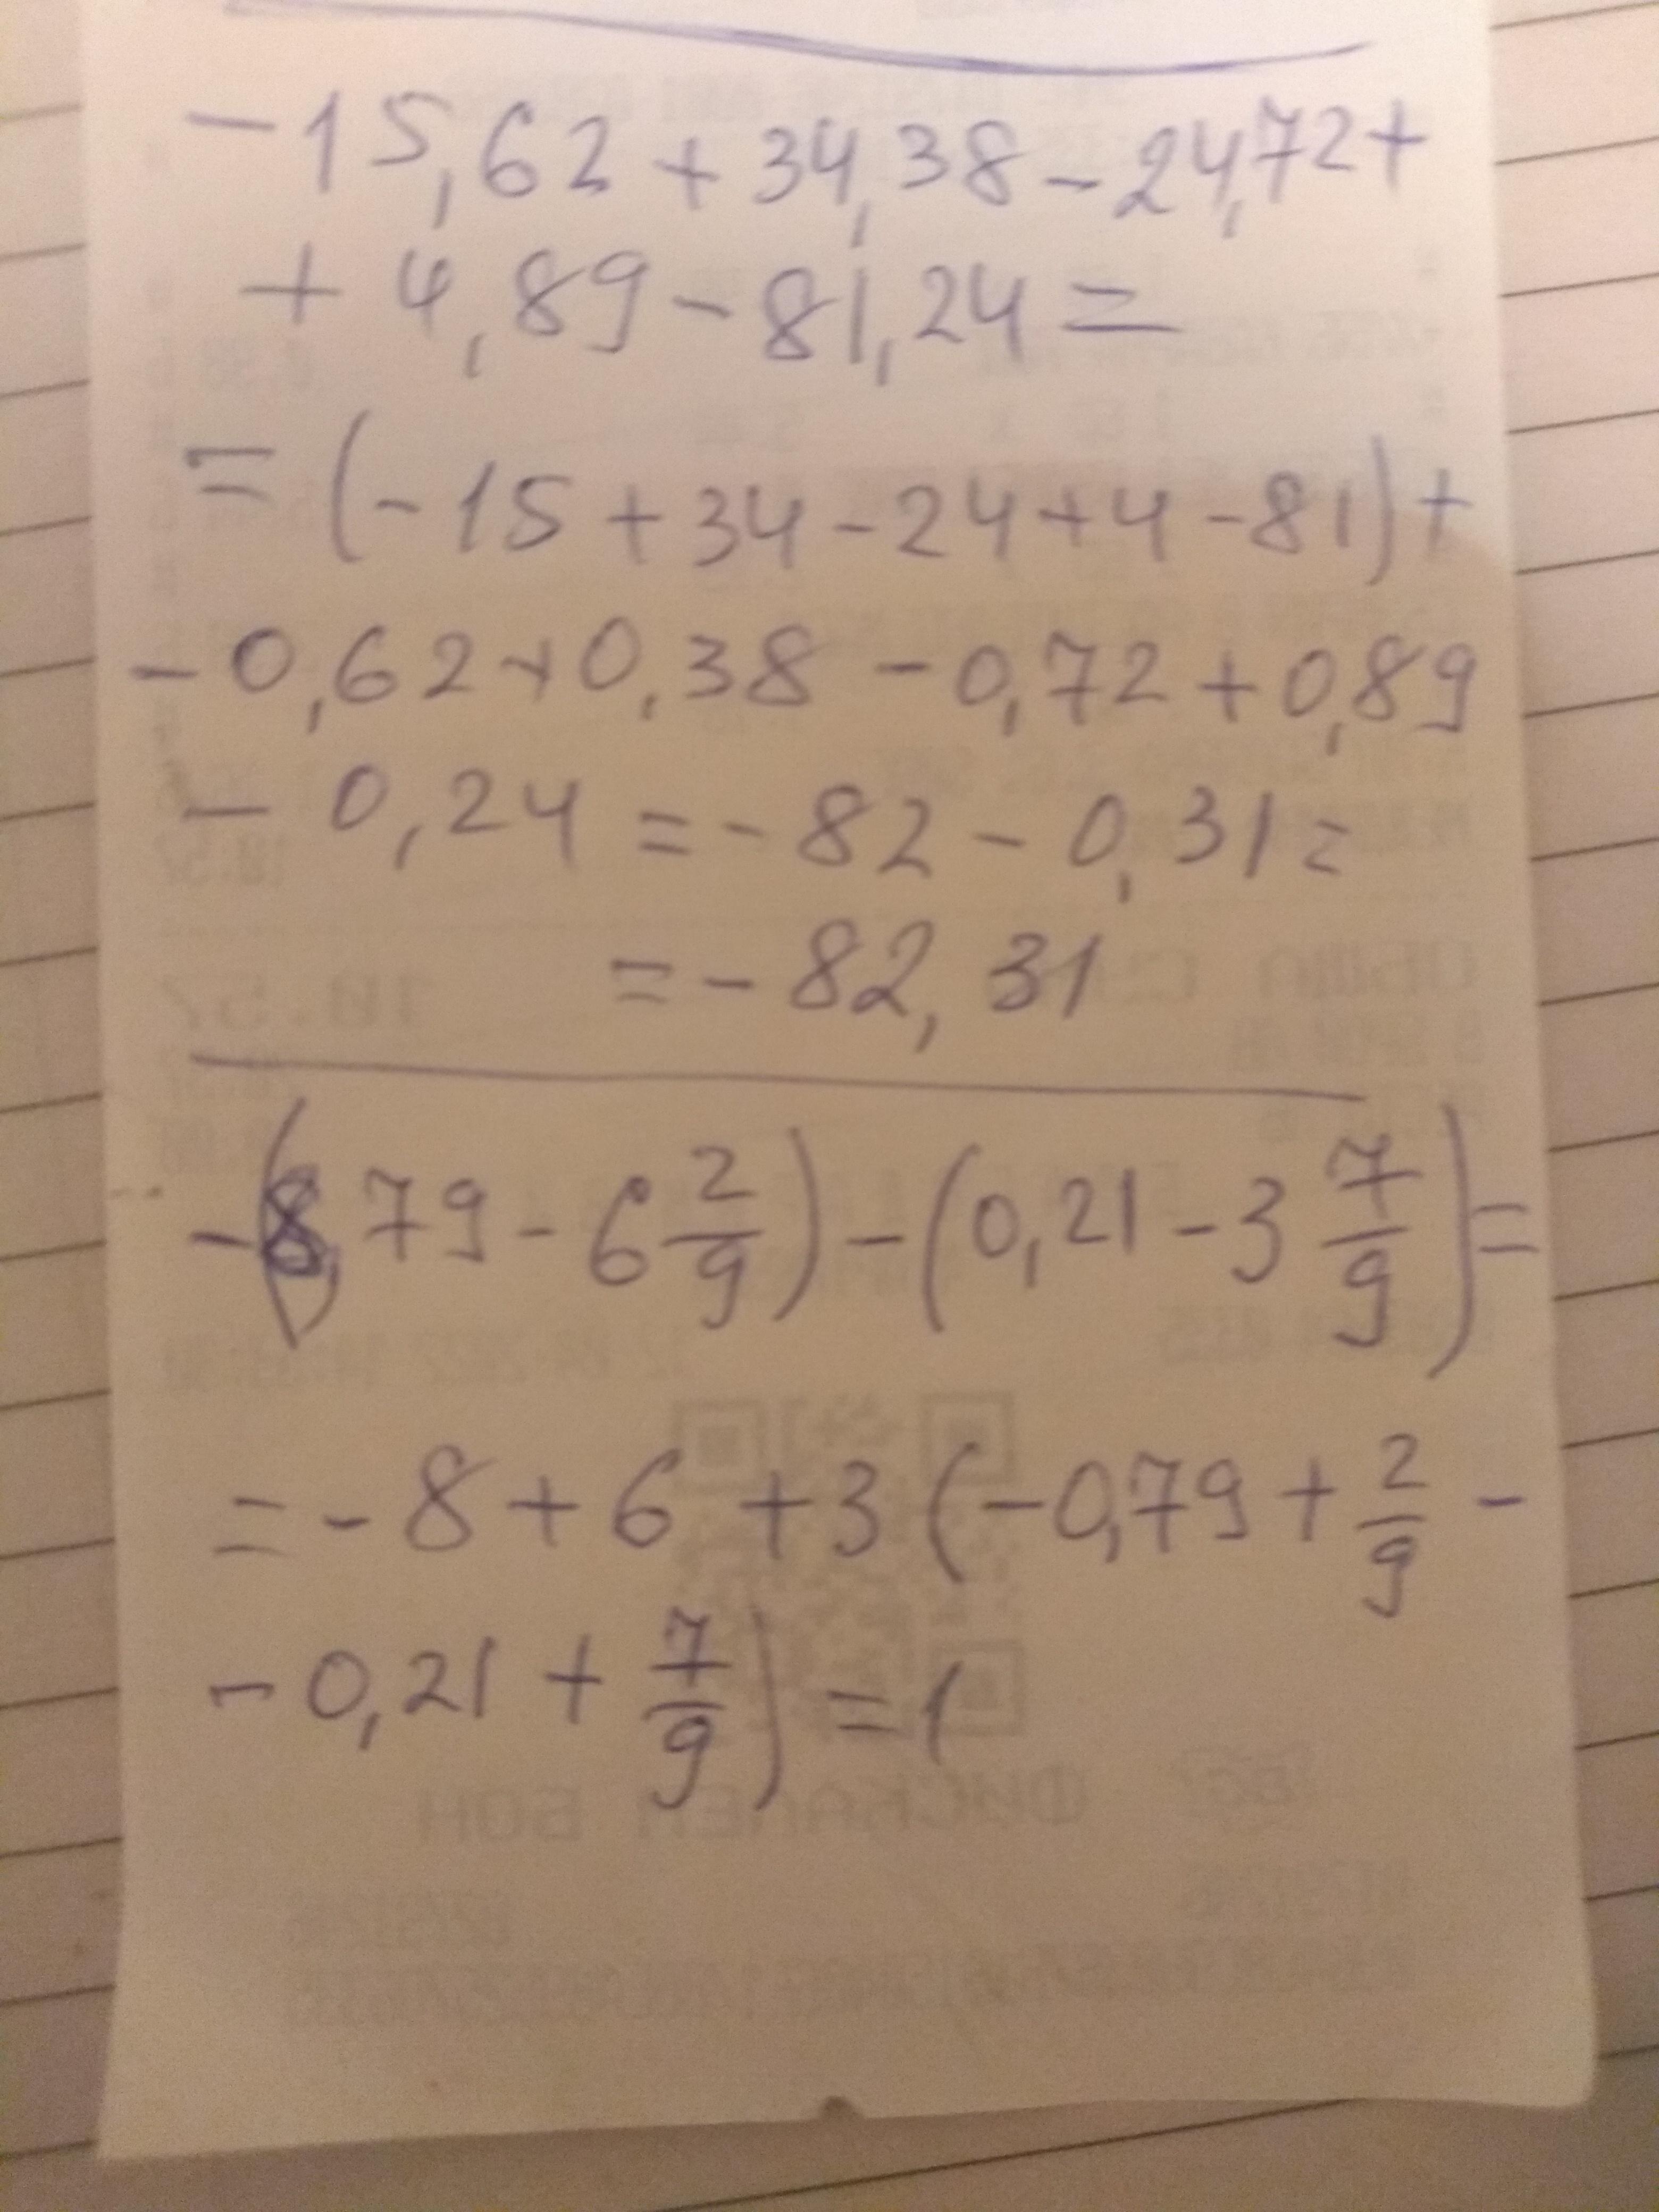 -15,62+34,38-24,72+
+4,89-81,24=
=(-15+34-24+4-81)+
-0,62+0,38-0,72+0,89
-0,24=-82-0,31=
=-82,31
-(8,79-6 2/9)-(0,21-3 7/9)=
=-8+6+3(-0,79+2/9-
-0,21+7/9)=1
ФИСКАЛЕН БОН